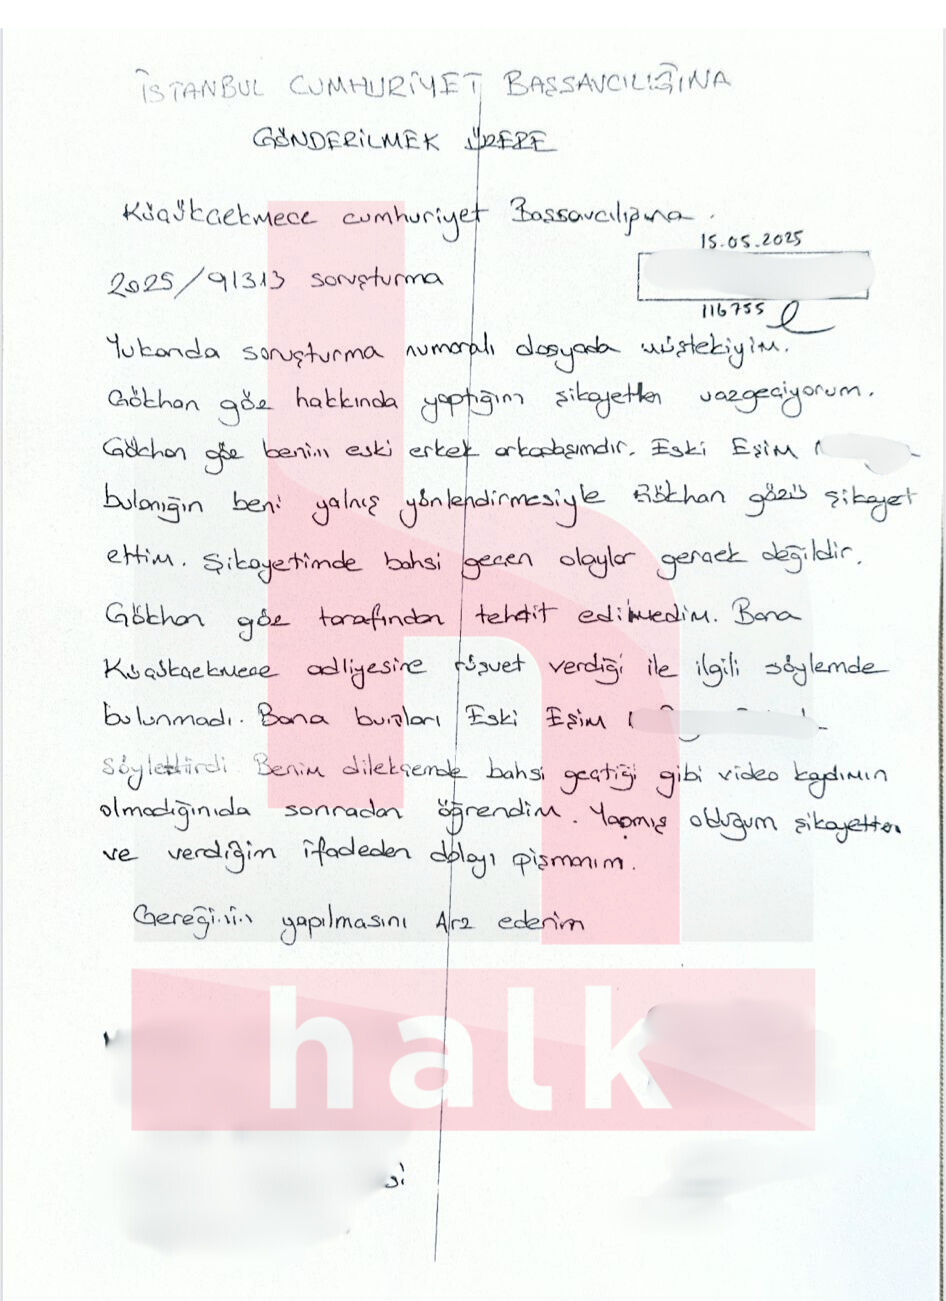 İSTANBUL CUMHURİYET BAŞSAVCILIĞINA
GÖNDERİLMEK ÜZERE
Küçükçekmece cumhuriyet Başsavcılığına.
15.05.2025
2025/91313 soruşturma
116755
Yukarıda soruşturma numaralı dosyada müştekiyim.
Gökhan göz hakkında yaptığım şikayetten vazgeçiyorum.
Gökhan göz benim eski erkek arkadaşımdır. Eski Eşim
bulanığın beni yalnış yönlendirmesiyle Gökhan gözü şikayet
ettim. Şikayetimde bahsi geçen olaylar gerçek değildir.
Gökhan göz tarafından tehdit edilmedim. Bana
Küçükçekmece adliyesine rüşvet verdiği ile ilgili söylemde
bulunmadı. Bana bunları Eski Eşim
söylettirdi Benim dilekçemde bahsi geçtiği gibi video kaydımın
olmadığınıda sonradan öğrendim. Yapmış olduğum şikayetten
ve verdiğim ifadeden dolayı pişmanım.
Gereğinin yapılmasını Arz ederim
halk
si